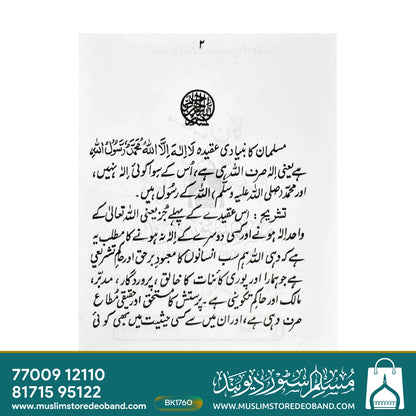 ۲
مسلمان کا بنیادی عقیدہ لَا اِلٰہَ اِلَّا اللّٰہُ مُحَمَّدٌ رَّسُوْلُ اللّٰہِ
ہے یعنی اِلٰہ صرف اللہ ہی ہے، اُس کے سوا کوئی اِلٰہ نہیں،
اور محمد (صلی اللہ علیہ وسلم) اللہ کے رسُول ہیں۔
تشریح: اِس عقیدے کے پہلے جُز یعنی اللہ تعالیٰ کے
واحد اِلٰہ ہونے اور کسی دوسرے کے اِلٰہ نہ ہونے کا مطلب یہ
ہے کہ وہی اللہ ہم سب انسانوں کا معبودِ برحق اور حاکمِ تشریعی
ہے جو ہمارا اور پوری کائنات کا خالق، پروردگار، مدبّر،
مالک اور حاکمِ تکوینی ہے۔ پرستش کا مُستحق اور حقیقی مُطاع
صرف وہی ہے، اور ان میں سے کسی حیثیت میں بھی کوئی
77009 12110
81715 95122
BK1760
مسلم سٹور دیوبند
www.muslimstoredeoband.com
WWW.MUSLIMSTOREDEOBAND.COM